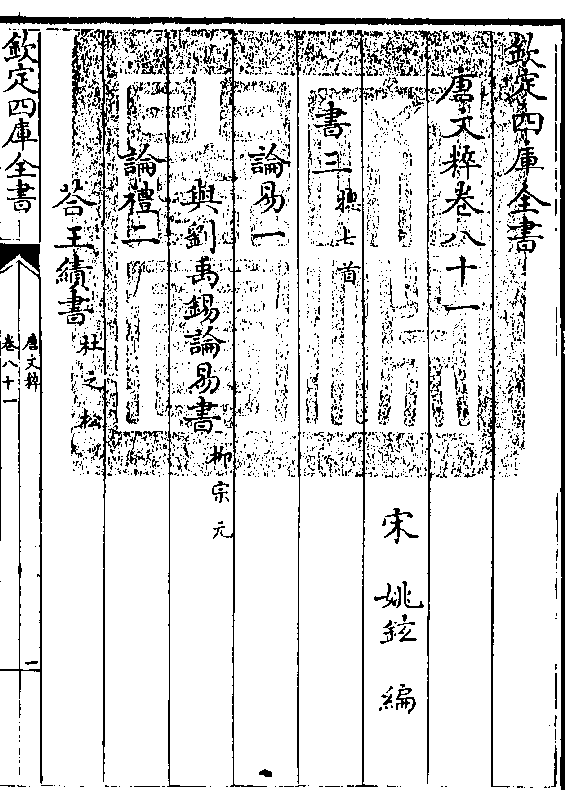 欽定四庫全書
唐文粹卷八十一
宋 姚鉉 編
書三 總七首
論易一
與劉禹錫論易書 柳宗元
論禮二
荅王績書 杜之松
欽定四庫全書
唐文粹
卷八十一
一